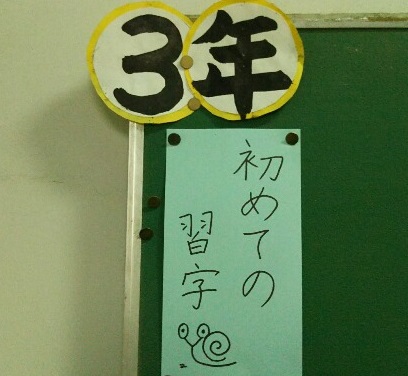 3年
初めての
習字